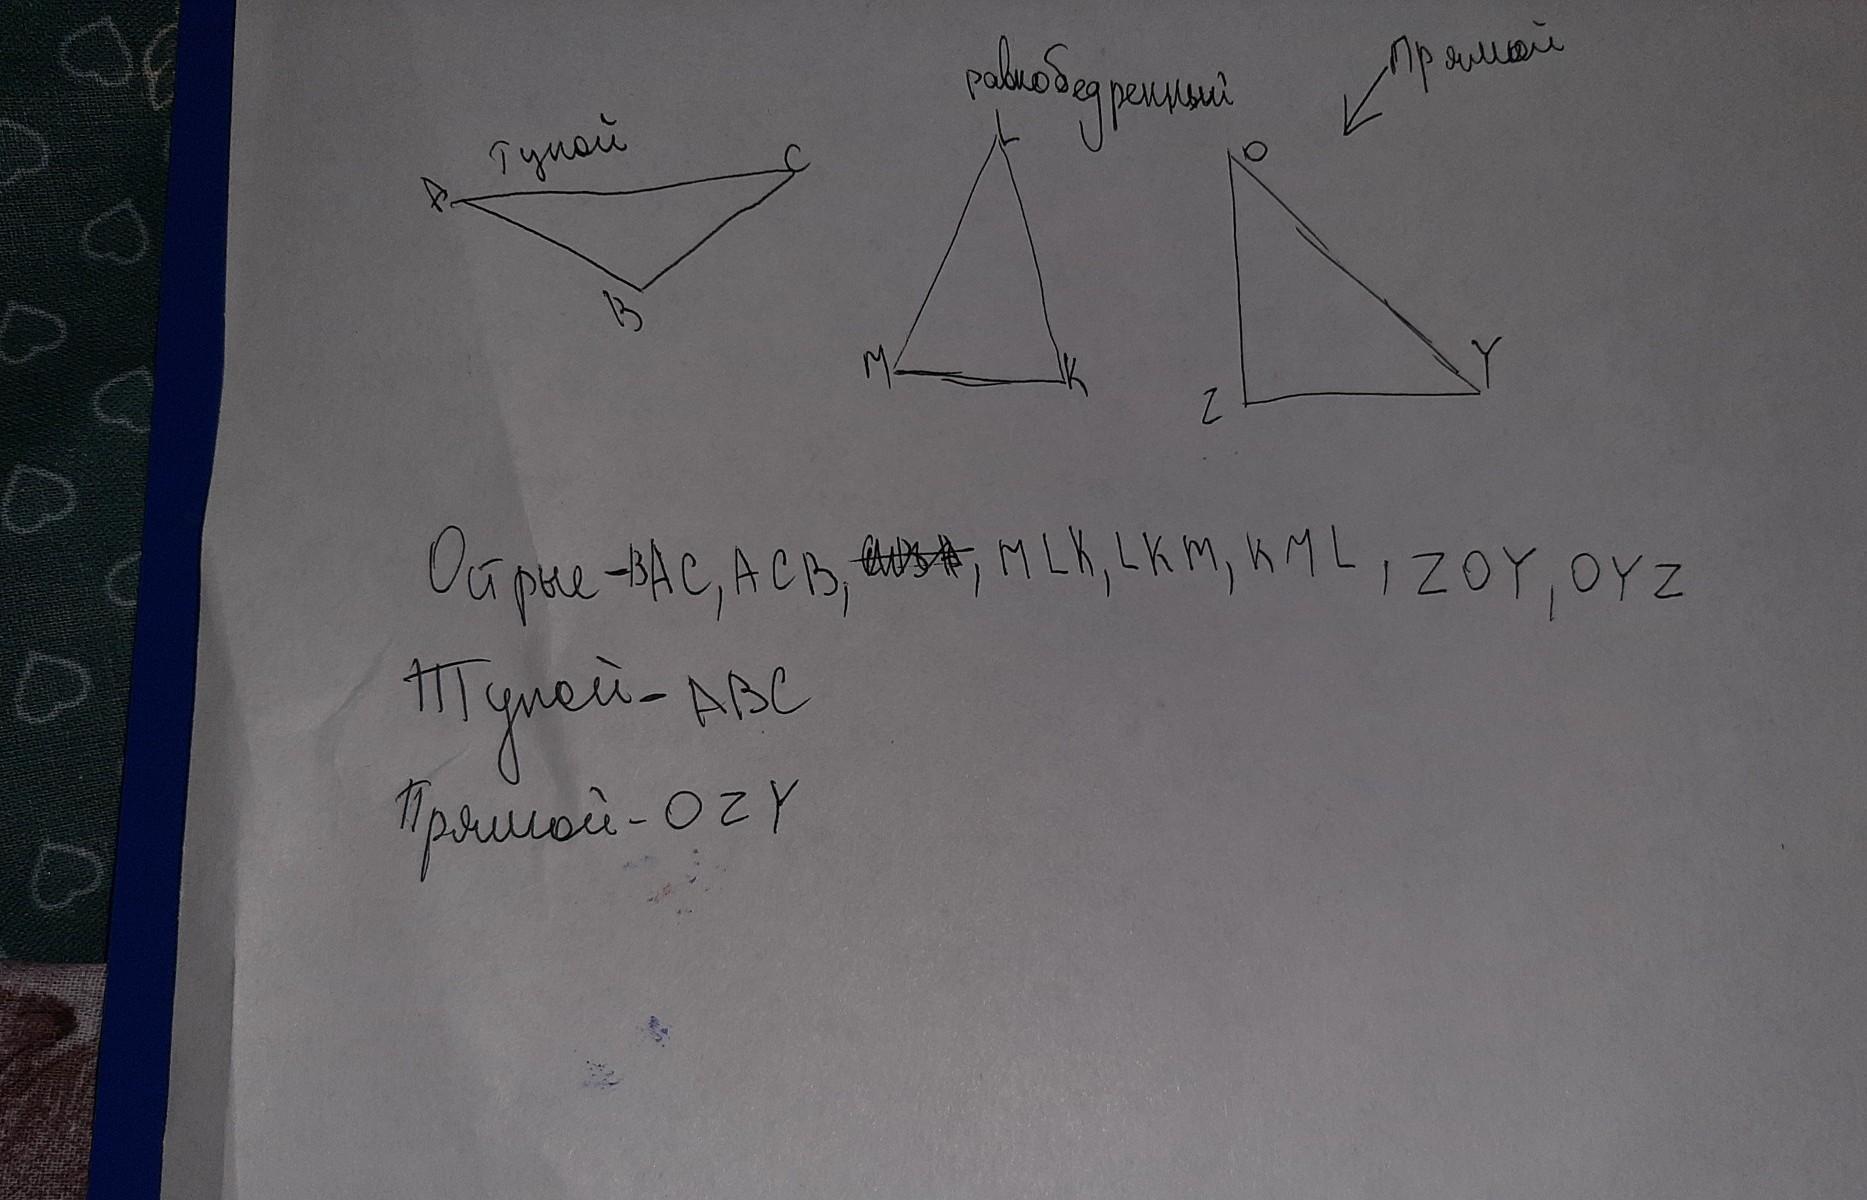 Тупой
равнобедренный
Прямой
A
C
B
L
M
K
O
Z
Y
Острые - BAC, ACB, , MLK, LKM, KML, ZOY, OYZ
Тупой - ABC
Прямой - OZY